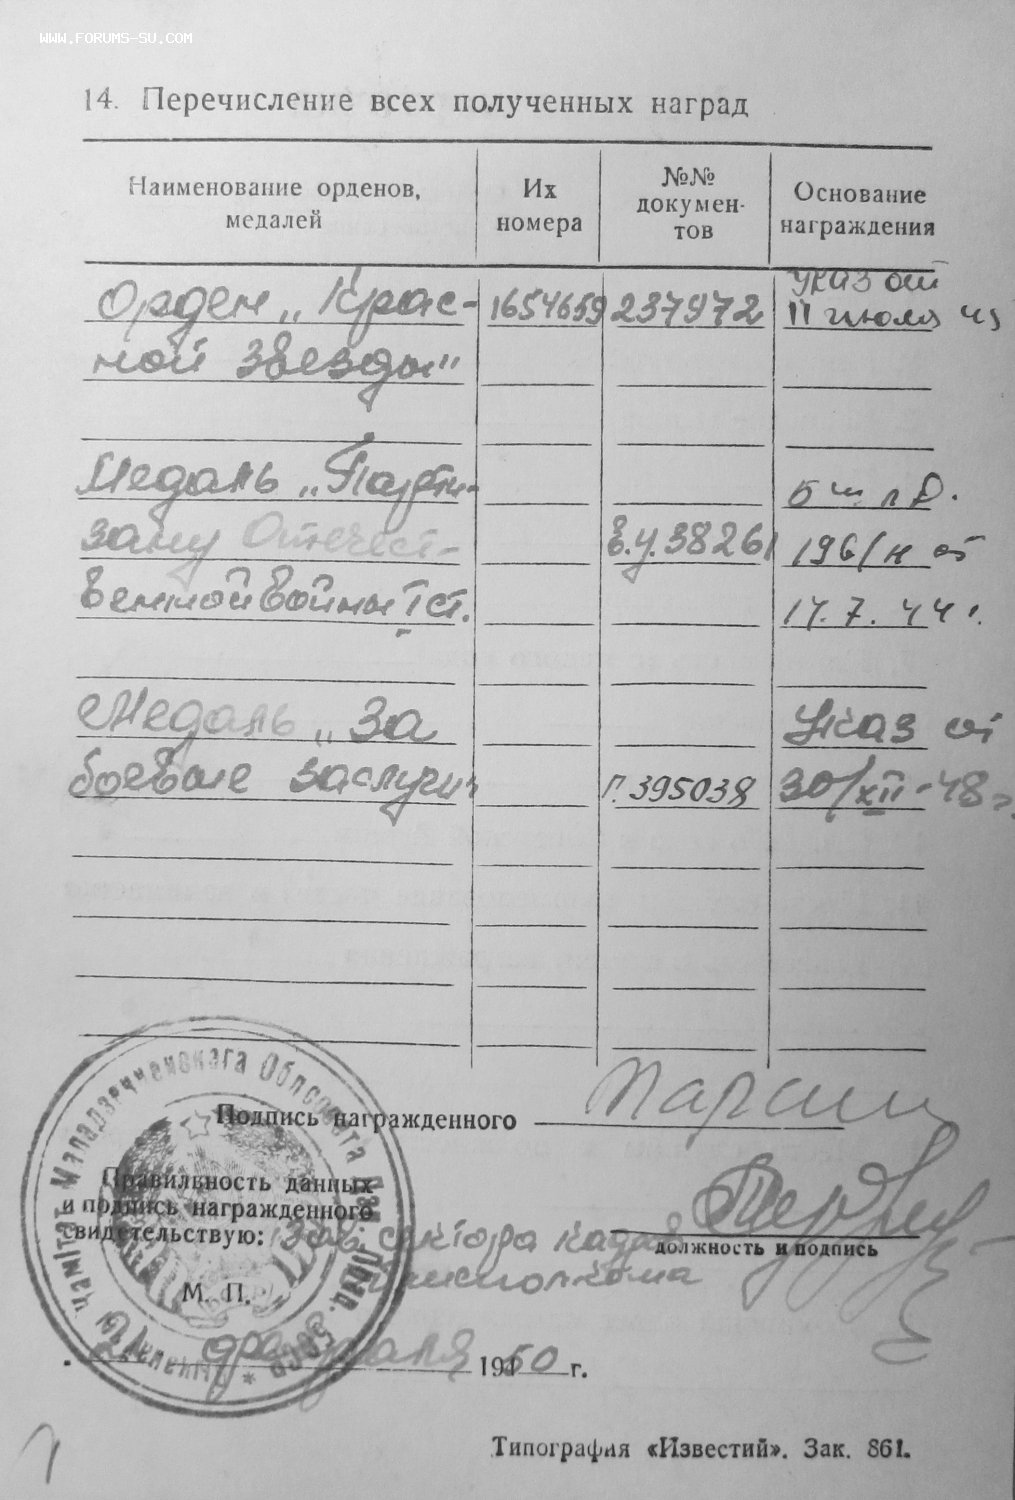 WWW.FORUMS-SU.COM
14. Перечисление всех полученных наград
Наименование орденов, медалей
Их номера
№№ докумен- тов
Основание награждения
Указ от
Орден „Крас- 1654659 237972 11 июля 45
ной Звезды"
Медаль „Парти- Б Ш П Д.
зану Отечест- Б.У.38261 196/н от
венной Войны I ст. 17.7.44 г.
Медаль „За Указ от
боевые заслуги" Г.395038 30/XII-48 г.
Подпись награжденного
Правильность данных
и подпись награжденного
свидетельствую: Зав. сектора кадров
должность и подпись
исполкома
М. П.
февраля 1950 г.
Маладзечненскага Облсовета Дэп. Прац. БССР
Типография «Известий». Зак. 861.